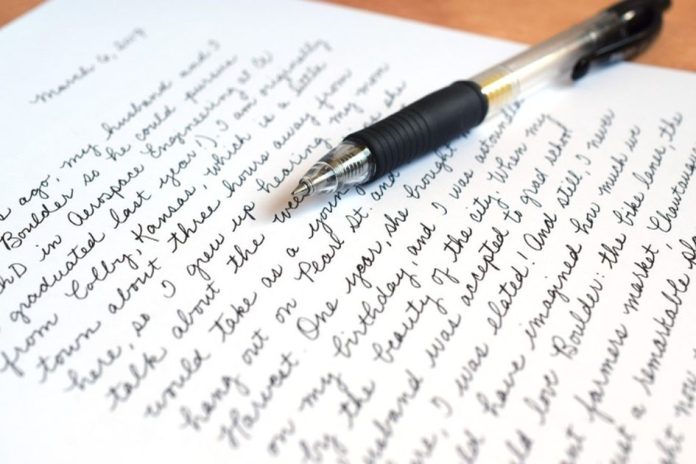 March 6, 2017
ago, my husband and I
Boulder so he could pursue
PhD in Aerospace Engineering at
graduated last year!). I am originally
from Colby, Kansas, which is a little
town about three hours away from
here, so I grew up hearing my mom
talk about the she
would take as a young
hang out on Pearl St. and
Harvest. One year, she brought
on my birthday and I was astounded
by the beauty of the city. When my
husband was accepted to grad school
I was elated! And still I never
have imagined how much we
love Boulder: the bike lanes, the
farmers market, Chautauqua
a remarkable
right now